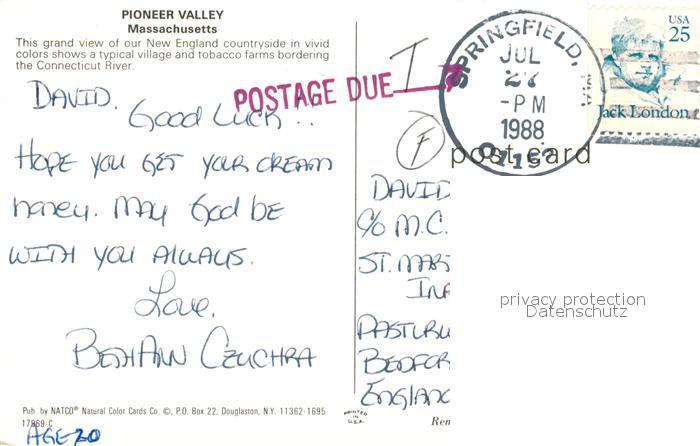 PIONEER VALLEY
Massachusetts
This grand view of our New England countryside in vivid
colors shows a typical village and tobacco farms bordering
the Connecticut River.
DAVID.
Good Luck!!
HOPE YOU GET YOUR CREAM
honey. May God be
WITH YOU ALWAYS.
Love,
BETHANN CZUCHRA
Pub. by NATCO® Natural Color Cards Co. ©, P.O. Box 22, Douglaston, N.Y. 11362-1695
17969-C
AGE 20
POSTAGE DUE
T
F
SPRINGFIELD, MA
JUL
27
-PM
1988
USA
25
Jack London
post card
DAVID
C/O M.C.
ST. MAR
IN
PASTURU
BEDFOR
ENGLAND
privacy protection
Datenschutz
PRINTED
IN
U.S.A.
Ren